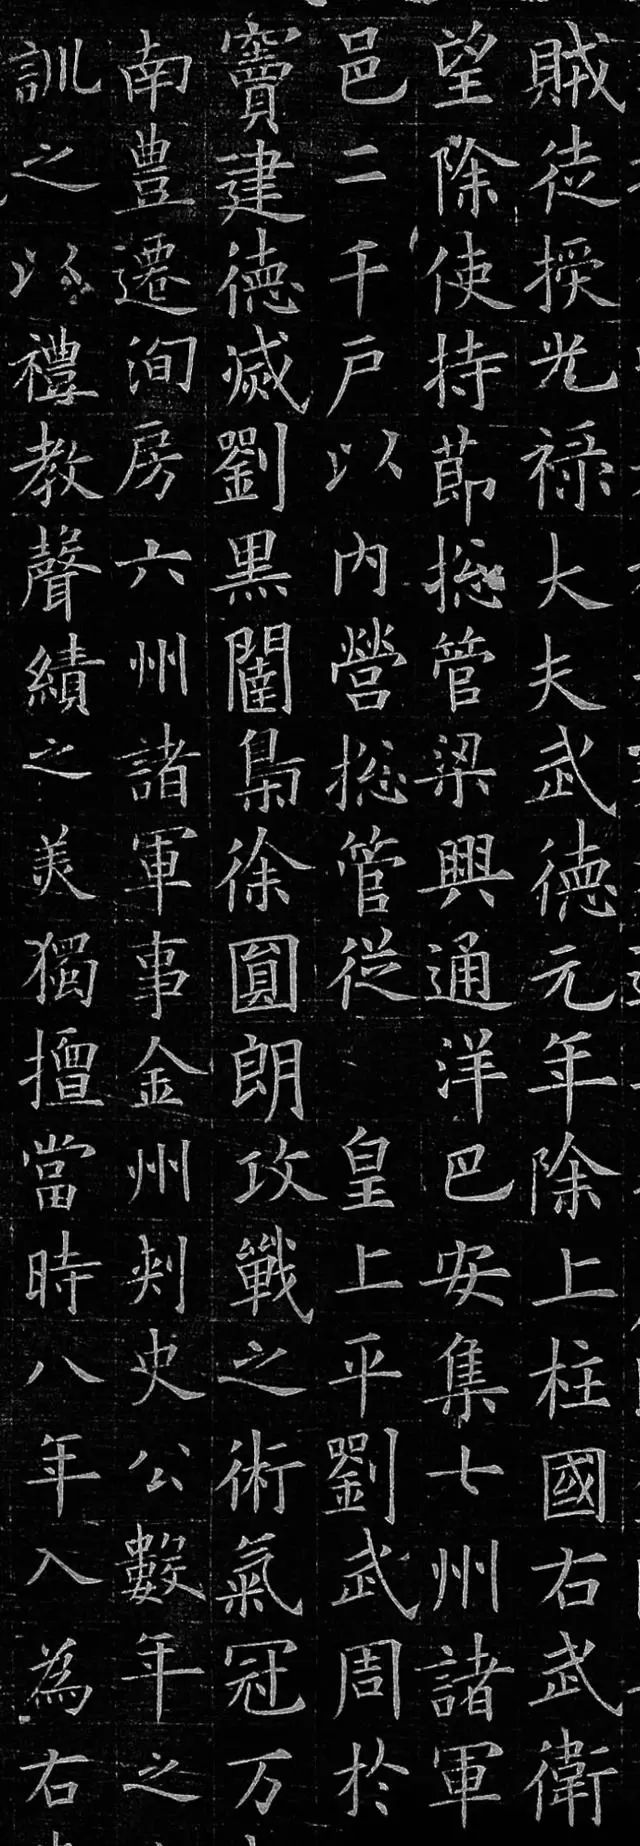 賊徒授光祿大夫武德元年除上柱國右武衛
望除使持節揔管梁興通洋巴安集七州諸軍
邑二千戶以内營揔管從 皇上平劉武周於
竇建德滅劉黑闥梟徐圓朗攻戰之術氣冠万
南豊遷洵房六州諸軍事金州刾史公數年之
訓之以禮教聲績之美獨擅當時八年入為右